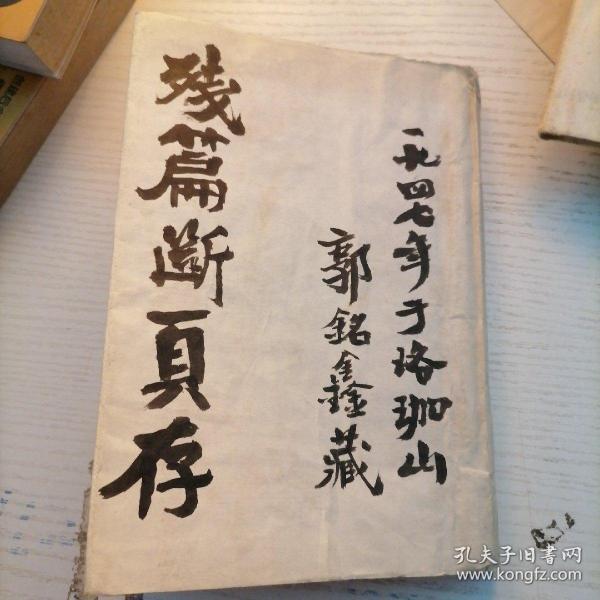 一九四七年于珞珈山
郭铭鑫藏
残篇断頁存
孔夫子旧書网
www.kongfz.com